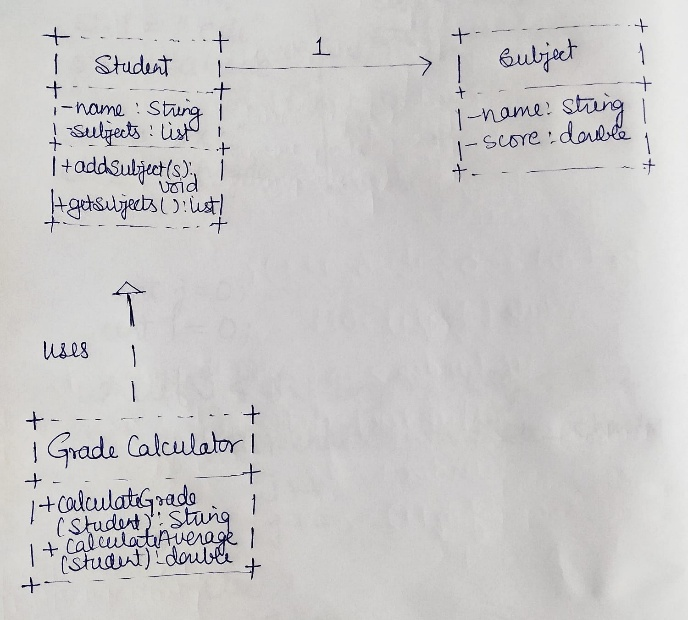 Student
-name : String
-subjects : list
+addSubject(s):
void
+getsubjects() : list
1
Subject
-name: String
-score : double
uses
Grade Calculator
+calculateGrade
(Student) : String
+ CalculateAverage
(Student) : double